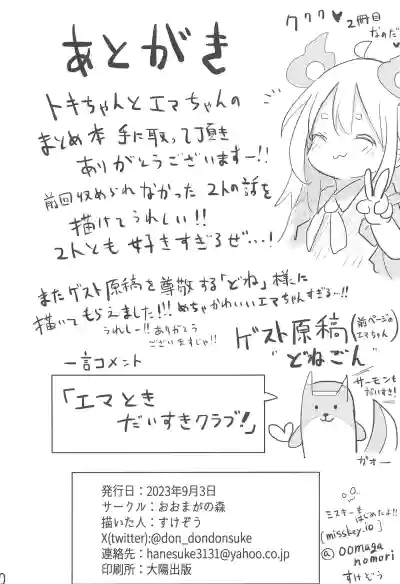 ククク♥
2冊目
なのだ♥
あとがき
トキちゃんとエマちゃんの
まとめ本 手に取って頂き
ありがとうございますー!!
前回収められなかった2人の話を
描けてうれしい!!
2人とも好きすぎるぜ…!
またゲスト原稿を尊敬する「どね」様に
描いてもらえました!!!めちゃかわいいエマちゃんすぎる…!!
うれしー!!ありがとう
ございますじゃ!!
ゲスト原稿(前ページのエマちゃん)
"どねごん"
一言コメント
「エマとき
だいすきクラブ!」
サーモンも
だいすき!
がおー
発行日:2023年9月3日
サークル:おおまがの森
描いた人:すけぞう
X(twitter):@don_dondonsuke
連絡先:hanesuke3131@yahoo.co.jp
印刷所:大陽出版
ミスキーも
はじめたよ!!
[misskey.io]
@oomaga
nomori
すけぞう